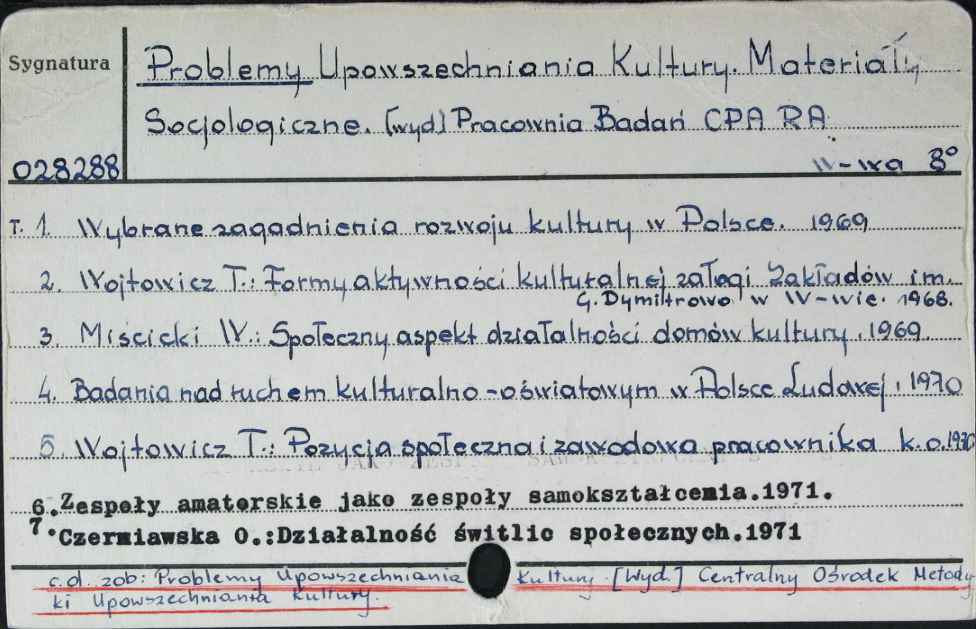 Sygnatura
Problemy Upowszechniania Kultury. Materiały
Socjologiczne. [wyd] Pracownia Badań CPA RA
028288
W-wa 8°
T. 1. Wybrane zagadnienia rozwoju kultury w Polsce. 1969
2. Wojtowicz T.: Formy aktywności kulturalnej załogi Zakładów im.
G. Dymitrowa w W-wie. 1968.
3. Miścicki W.: Społeczny aspekt działalności domów kultury. 1969.
4. Badania nad ruchem kulturalno-oświatowym w Polsce Ludowej. 1970
5. Wojtowicz T.: Pozycja społeczna i zawodowa pracownika k.o. 1970
6. Zespoły amatorskie jako zespoły samokształcemia.1971.
7. Czerniawska O.:Działalność świtlic społecznych.1971
c.d. zob: Problemy Upowszechniania Kultury. [Wyd.] Centralny Ośrodek Metody
ki Upowszechniania Kultury.